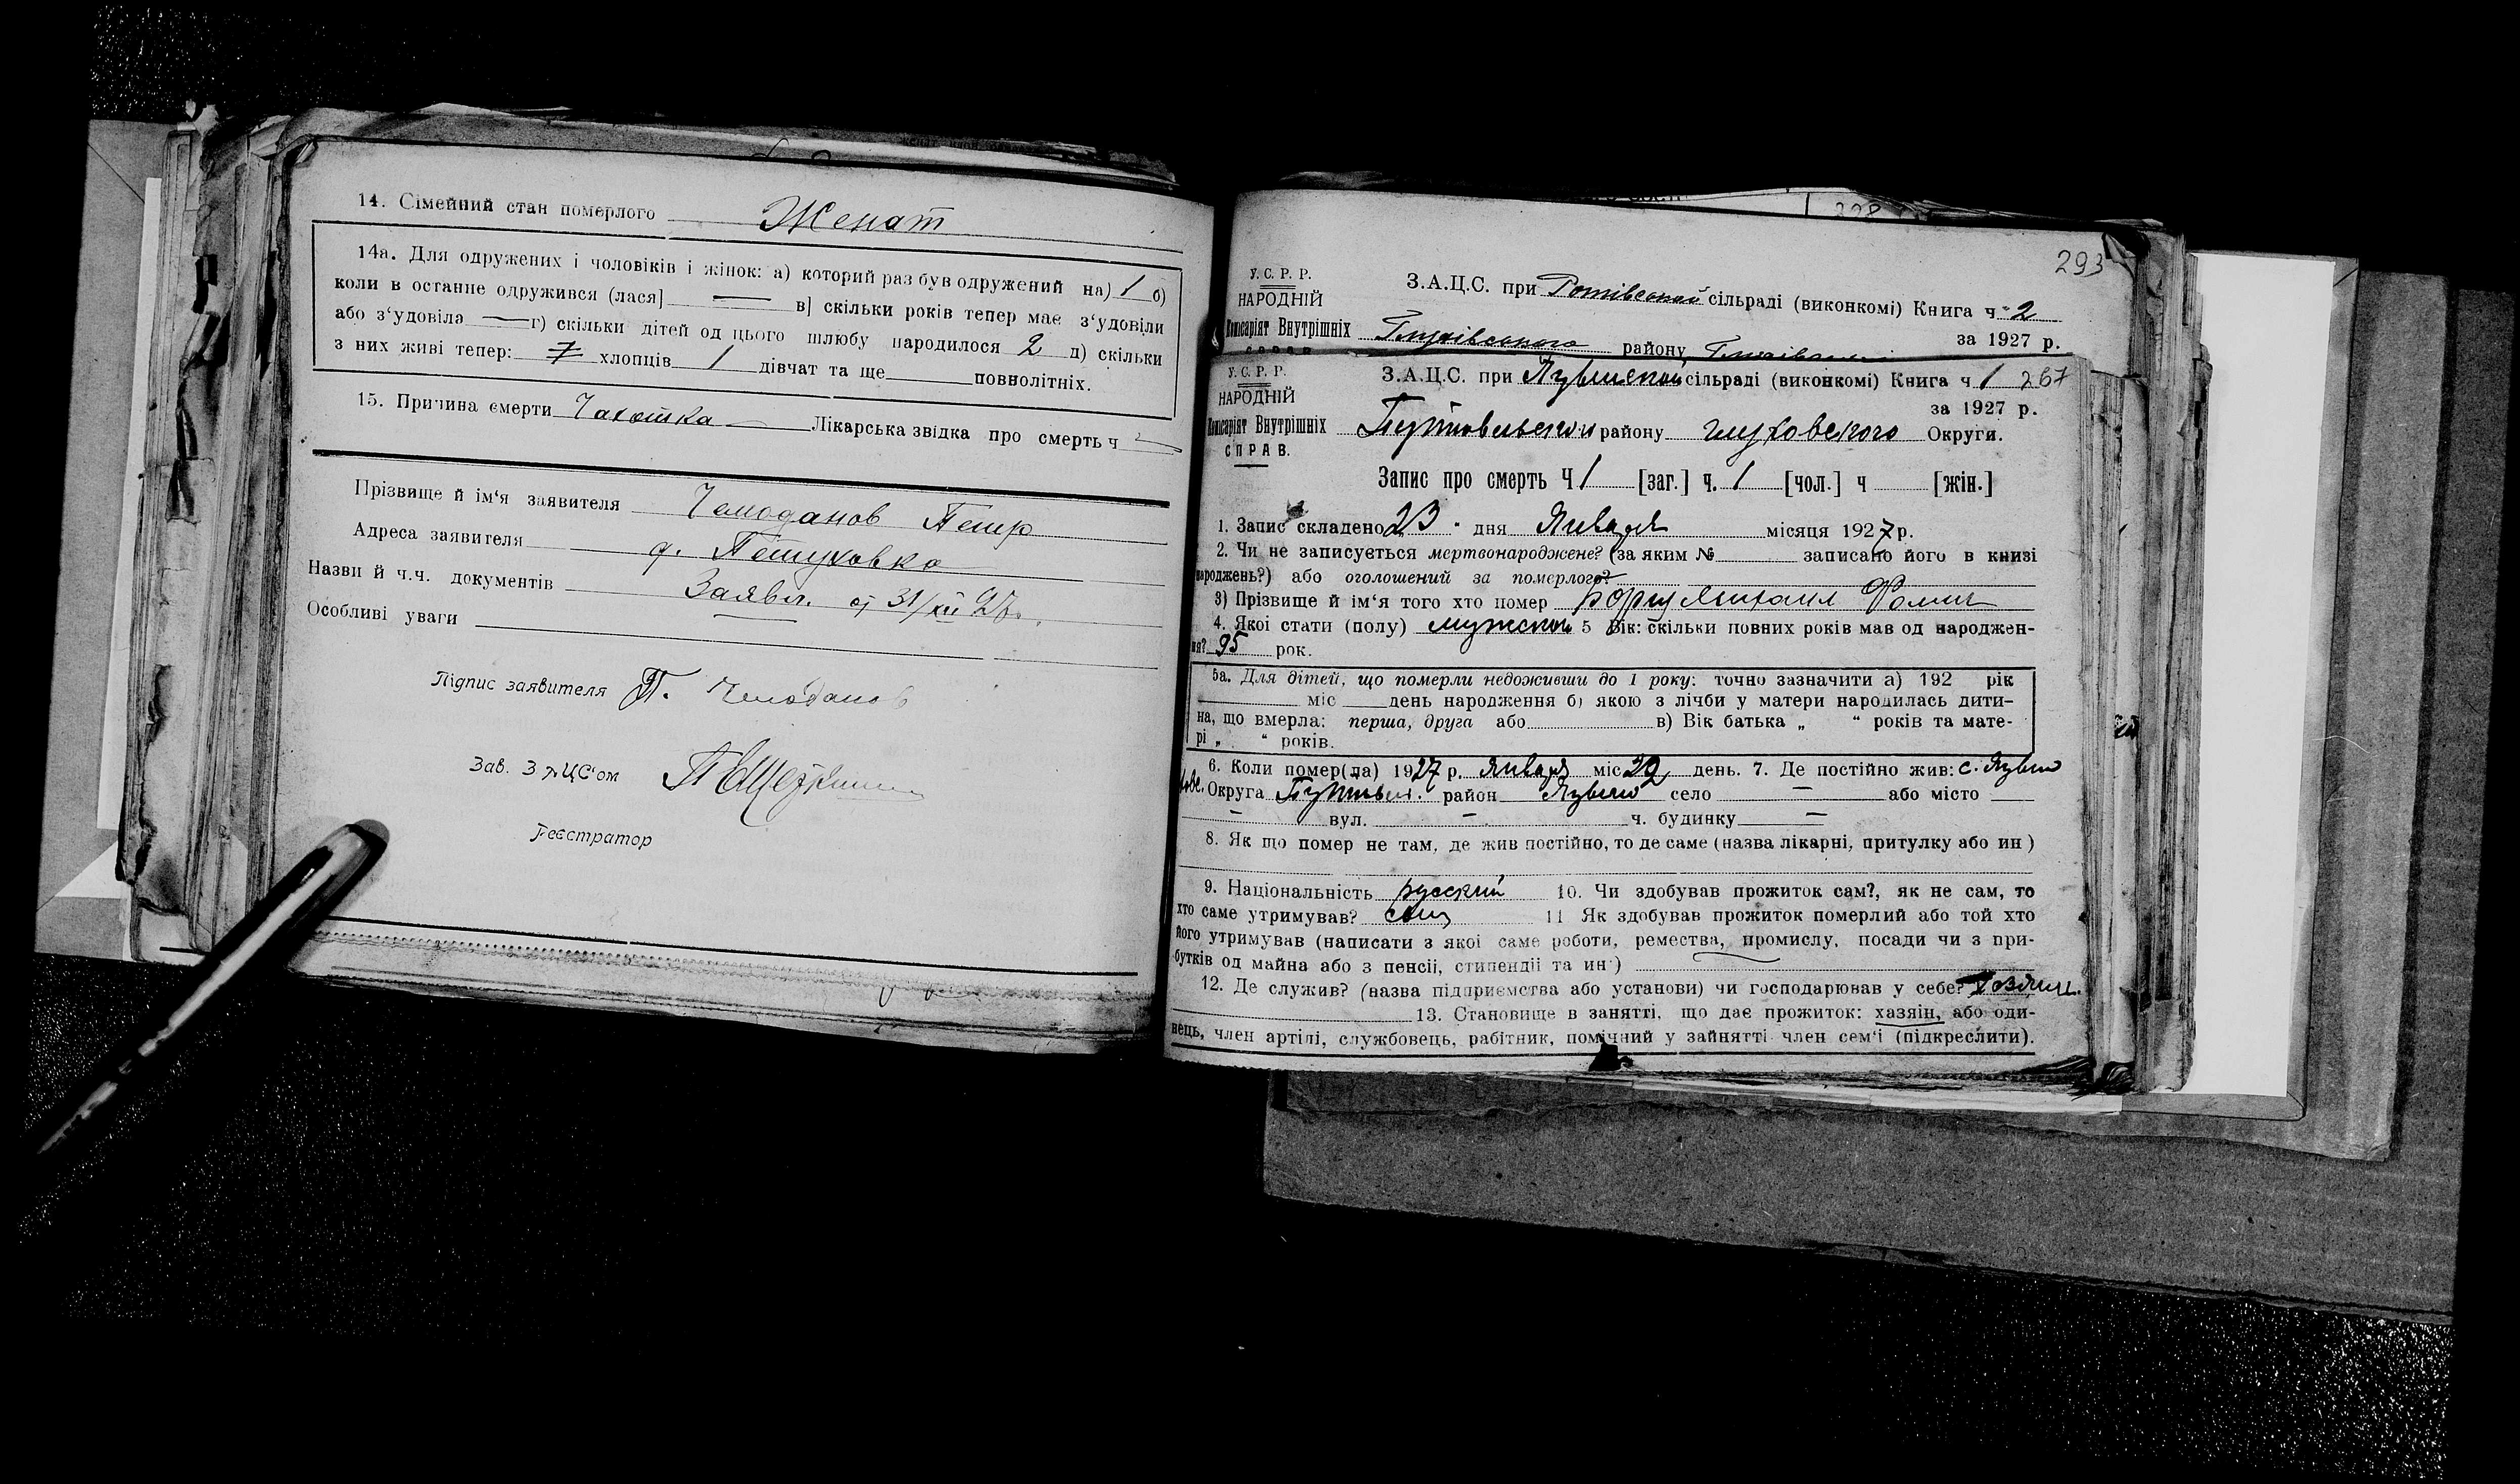 14. Сімейний стан померлого Женат
14а. Для одружених і чоловіків і жінок: а) которий раз був одружений на) 1 б)
коли в останне одружився (лася] — в] скільки років тепер має з‘удовіли
або з‘удовіла — г) скільки дітей од цього шлюбу народилося 2 д) скільки
з них живі тепер: хлопців 1 дівчат та ще повнолітніх.
15. Причина смерти Чахотка Лікарська звідка про смерть ч —
Прізвище й ім‘я заявителя Чемоданов Петр
Адреса заявителя д. Петуховка
Назви й ч.ч. документів Заявл. 31/XII
Особливі уваги —
Підпис заявителя П. Чемоданов
Зав. ЗАЦС‘ом
Реєстратор
293
У.С.Р.Р.
НАРОДНІЙ
Комісаріят Внутрішніх
З.А.Ц.С. при сільраді (виконкомі) Книга ч 2
району за 1927 р.
У.С.Р.Р.
НАРОДНІЙ
Комісаріят Внутрішніх
СПРАВ.
З.А.Ц.С. при сільраді (виконкомі) Книга ч 1 267
за 1927 р.
Путивельского району глуховского Округи.
Запис про смерть Ч 1 [заг.] ч. 1 [чол.] ч [жін.]
1. Запис складено 23 дня Января місяця 1927 р.
2. Чи не записується мертвонароджене? (за яким № записано його в книзі
народжень?) або оголошений за померлого?
3) Прізвище й ім‘я того хто помер Михаил
4. Якої стати (полу) мужской 5 Вік: скільки повних років мав од народжен-
ня? 95 рок.
5а. Для дітей, що померли недоживши до 1 року: точно зазначити а) 192 рік
міс день народження б) якою з лічби у матери народилась дити-
на, що вмерла: перша, друга або в) Вік батька „ “ років та мате-
рі „ “ років.
6. Коли помер(ла) 1927 р. Января міс день. 7. Де постійно жив: с.
Округа Путивл. район село — або місто
— вул. — ч. будинку —
8. Як що помер не там, де жив постійно, то де саме (назва лікарні, притулку або ин)
9. Національність русский 10. Чи здобував прожиток сам?, як не сам, то
хто саме утримував? сам 11 Як здобував прожиток померлий або той хто
його утримував (написати з якої саме роботи, ремества, промислу, посади чи з при-
бутків од майна або з пенсії, стипендії та ин)
12. Де служив? (назва підприємства або установи) чи господарював у себе?
13. Становище в занятті, що дає прожиток: хазяїн, або оди-
нець, член артілі, службовець, рабітник, помічний у зайнятті член сем‘ї (підкреслити).